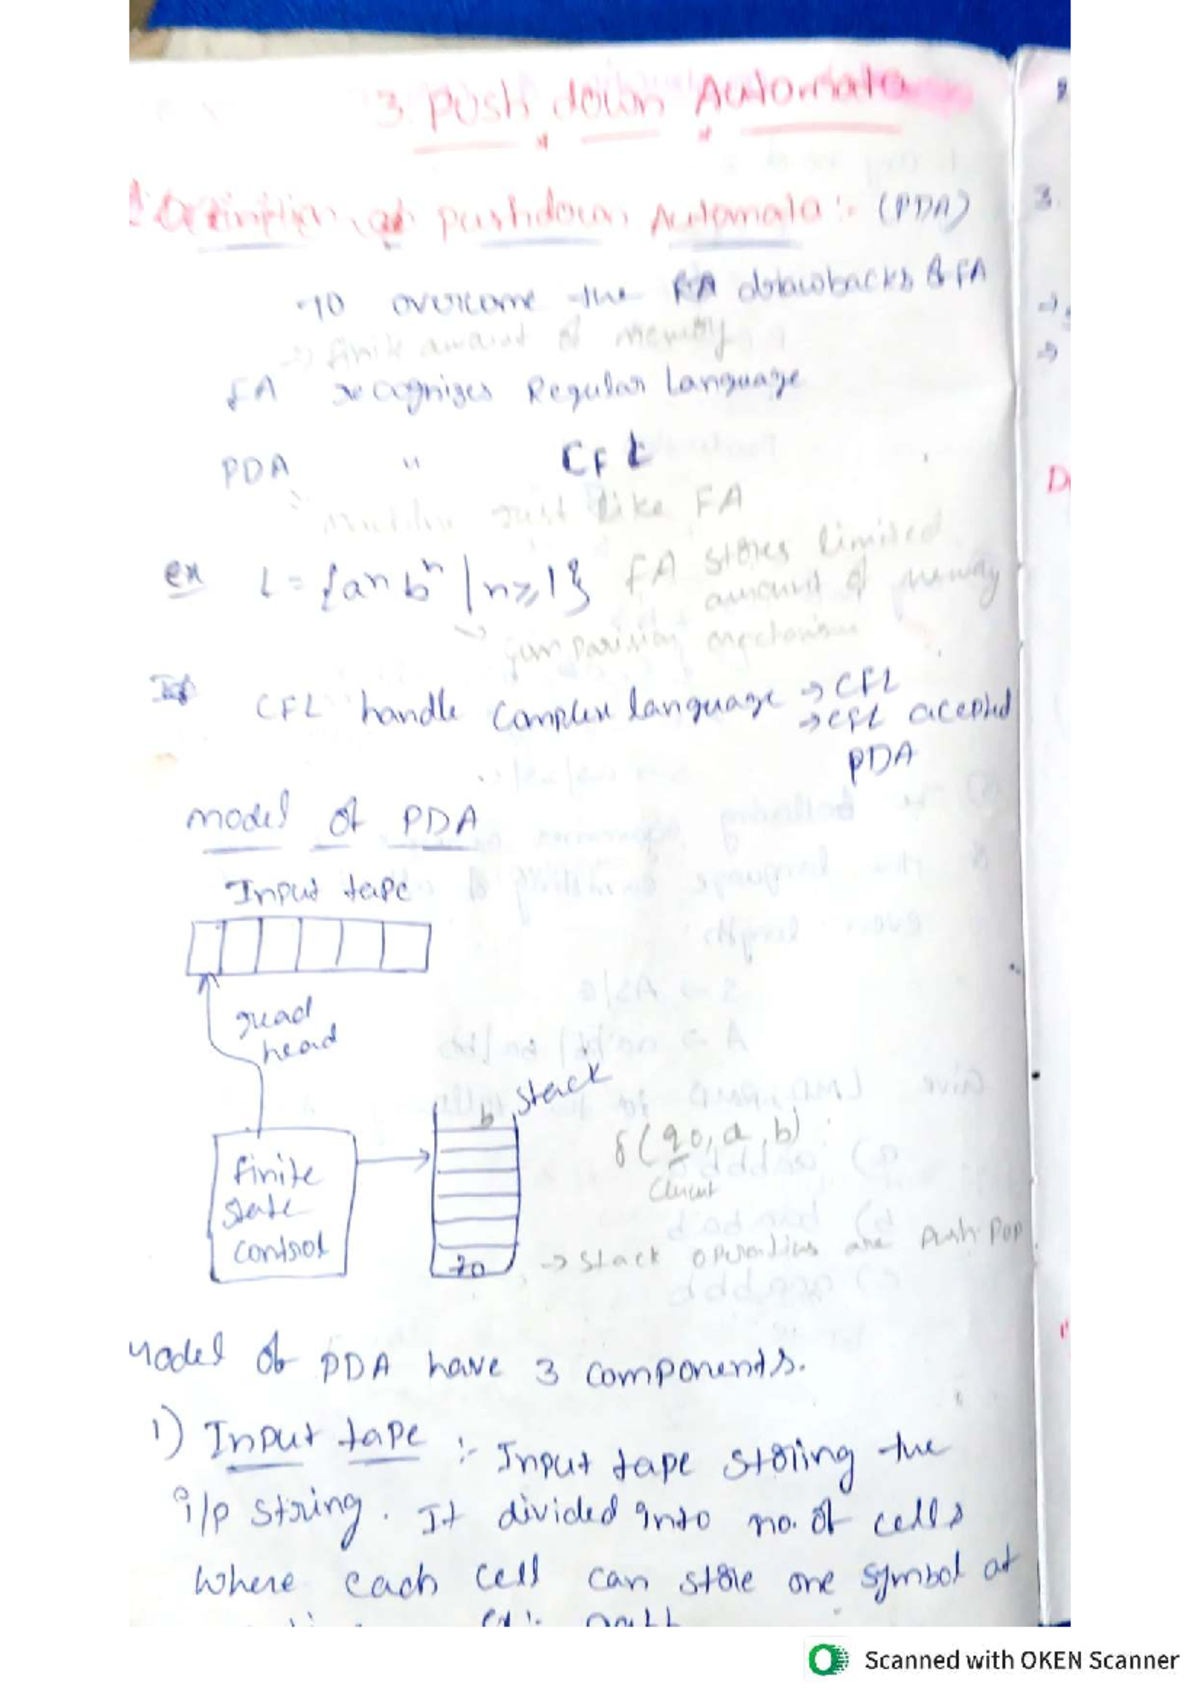 3. Push down Automata
Definition of pushdown Automata :- (PDA)
To overcome the FA drawbacks of FA
→ finite amount of memory
FA recognizes Regular Language
PDA " CFL
machine Just like FA
ex L = {aⁿ bⁿ | n ≥ 1} FA stores limited
amount of memory
comparision mechanism
CFL handle complex language → CFL
→ CFL accepted
PDA
model of PDA
Input tape
read
head
b stack
δ(q0, a, b)
finite
state
control
z0
→ stack operations are push pop
Model of PDA have 3 components.
1) Input tape :- Input tape storing the
i/p string. It divided into no. of cells
Where each cell can store one symbol at
Scanned with OKEN Scanner